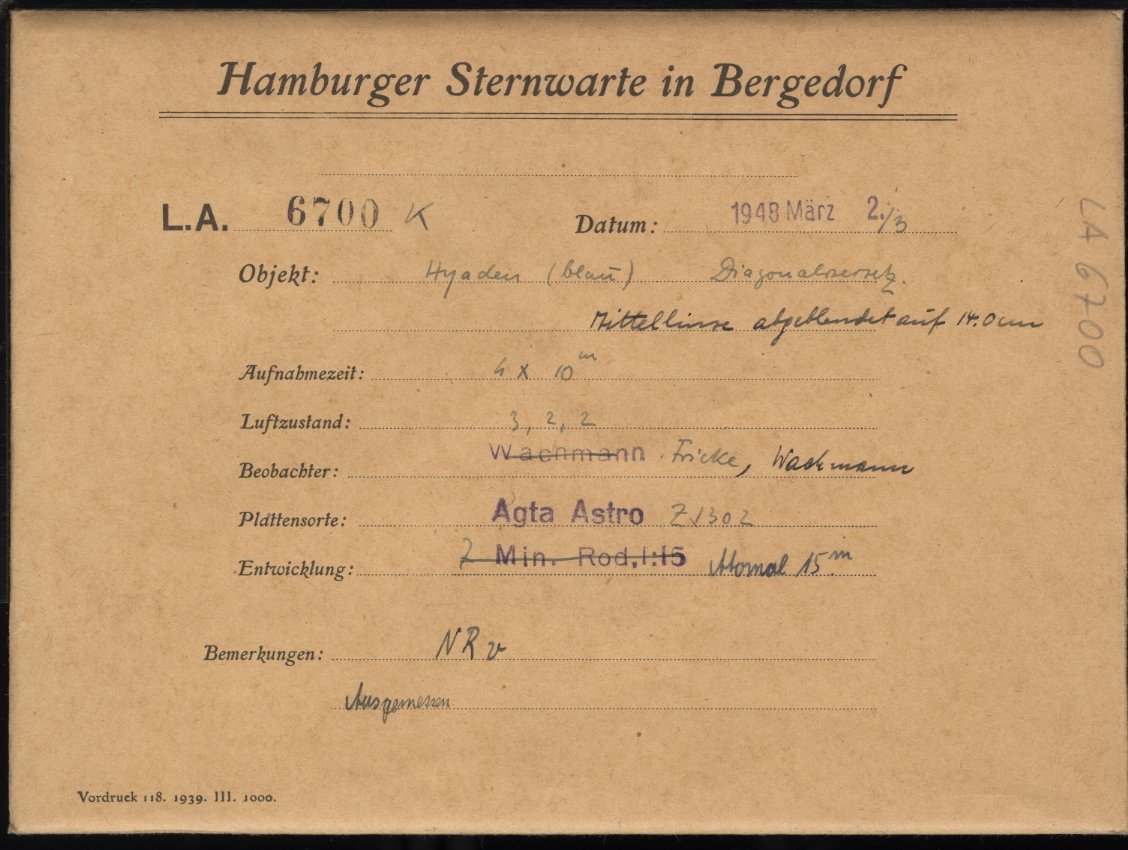 Hamburger Sternwarte in Bergedorf
L.A. 6700 K
Datum: 1948 März 2./3
Objekt: Hyaden (blau) Diagonalversetz.
Mittellinse abgeblendet auf 14.0 cm
Aufnahmezeit: 4 x 10m
Luftzustand: 3, 2, 2
Beobachter: Wachmann Fricke, Wachmann
Plattensorte: Agfa Astro Z1302
Entwicklung: 7 Min. Rod. 1:15 Atomal 15m
Bemerkungen: NR v
Ausgemessen
Vordruck 118. 1939. III. 1000.
LA 6700